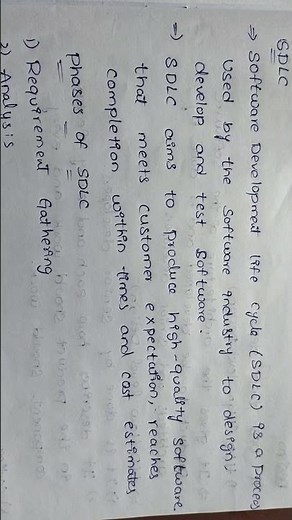 SDLC
⇒ Software Development life cycle (SDLC) is a process
used by the software industry to design,
develop and test software.
⇒ SDLC aims to produce high-quality software
that meets customer expectation, reaches
completion within times and cost estimates
Phases of SDLC
1) Requirement Gathering
2) Analysis